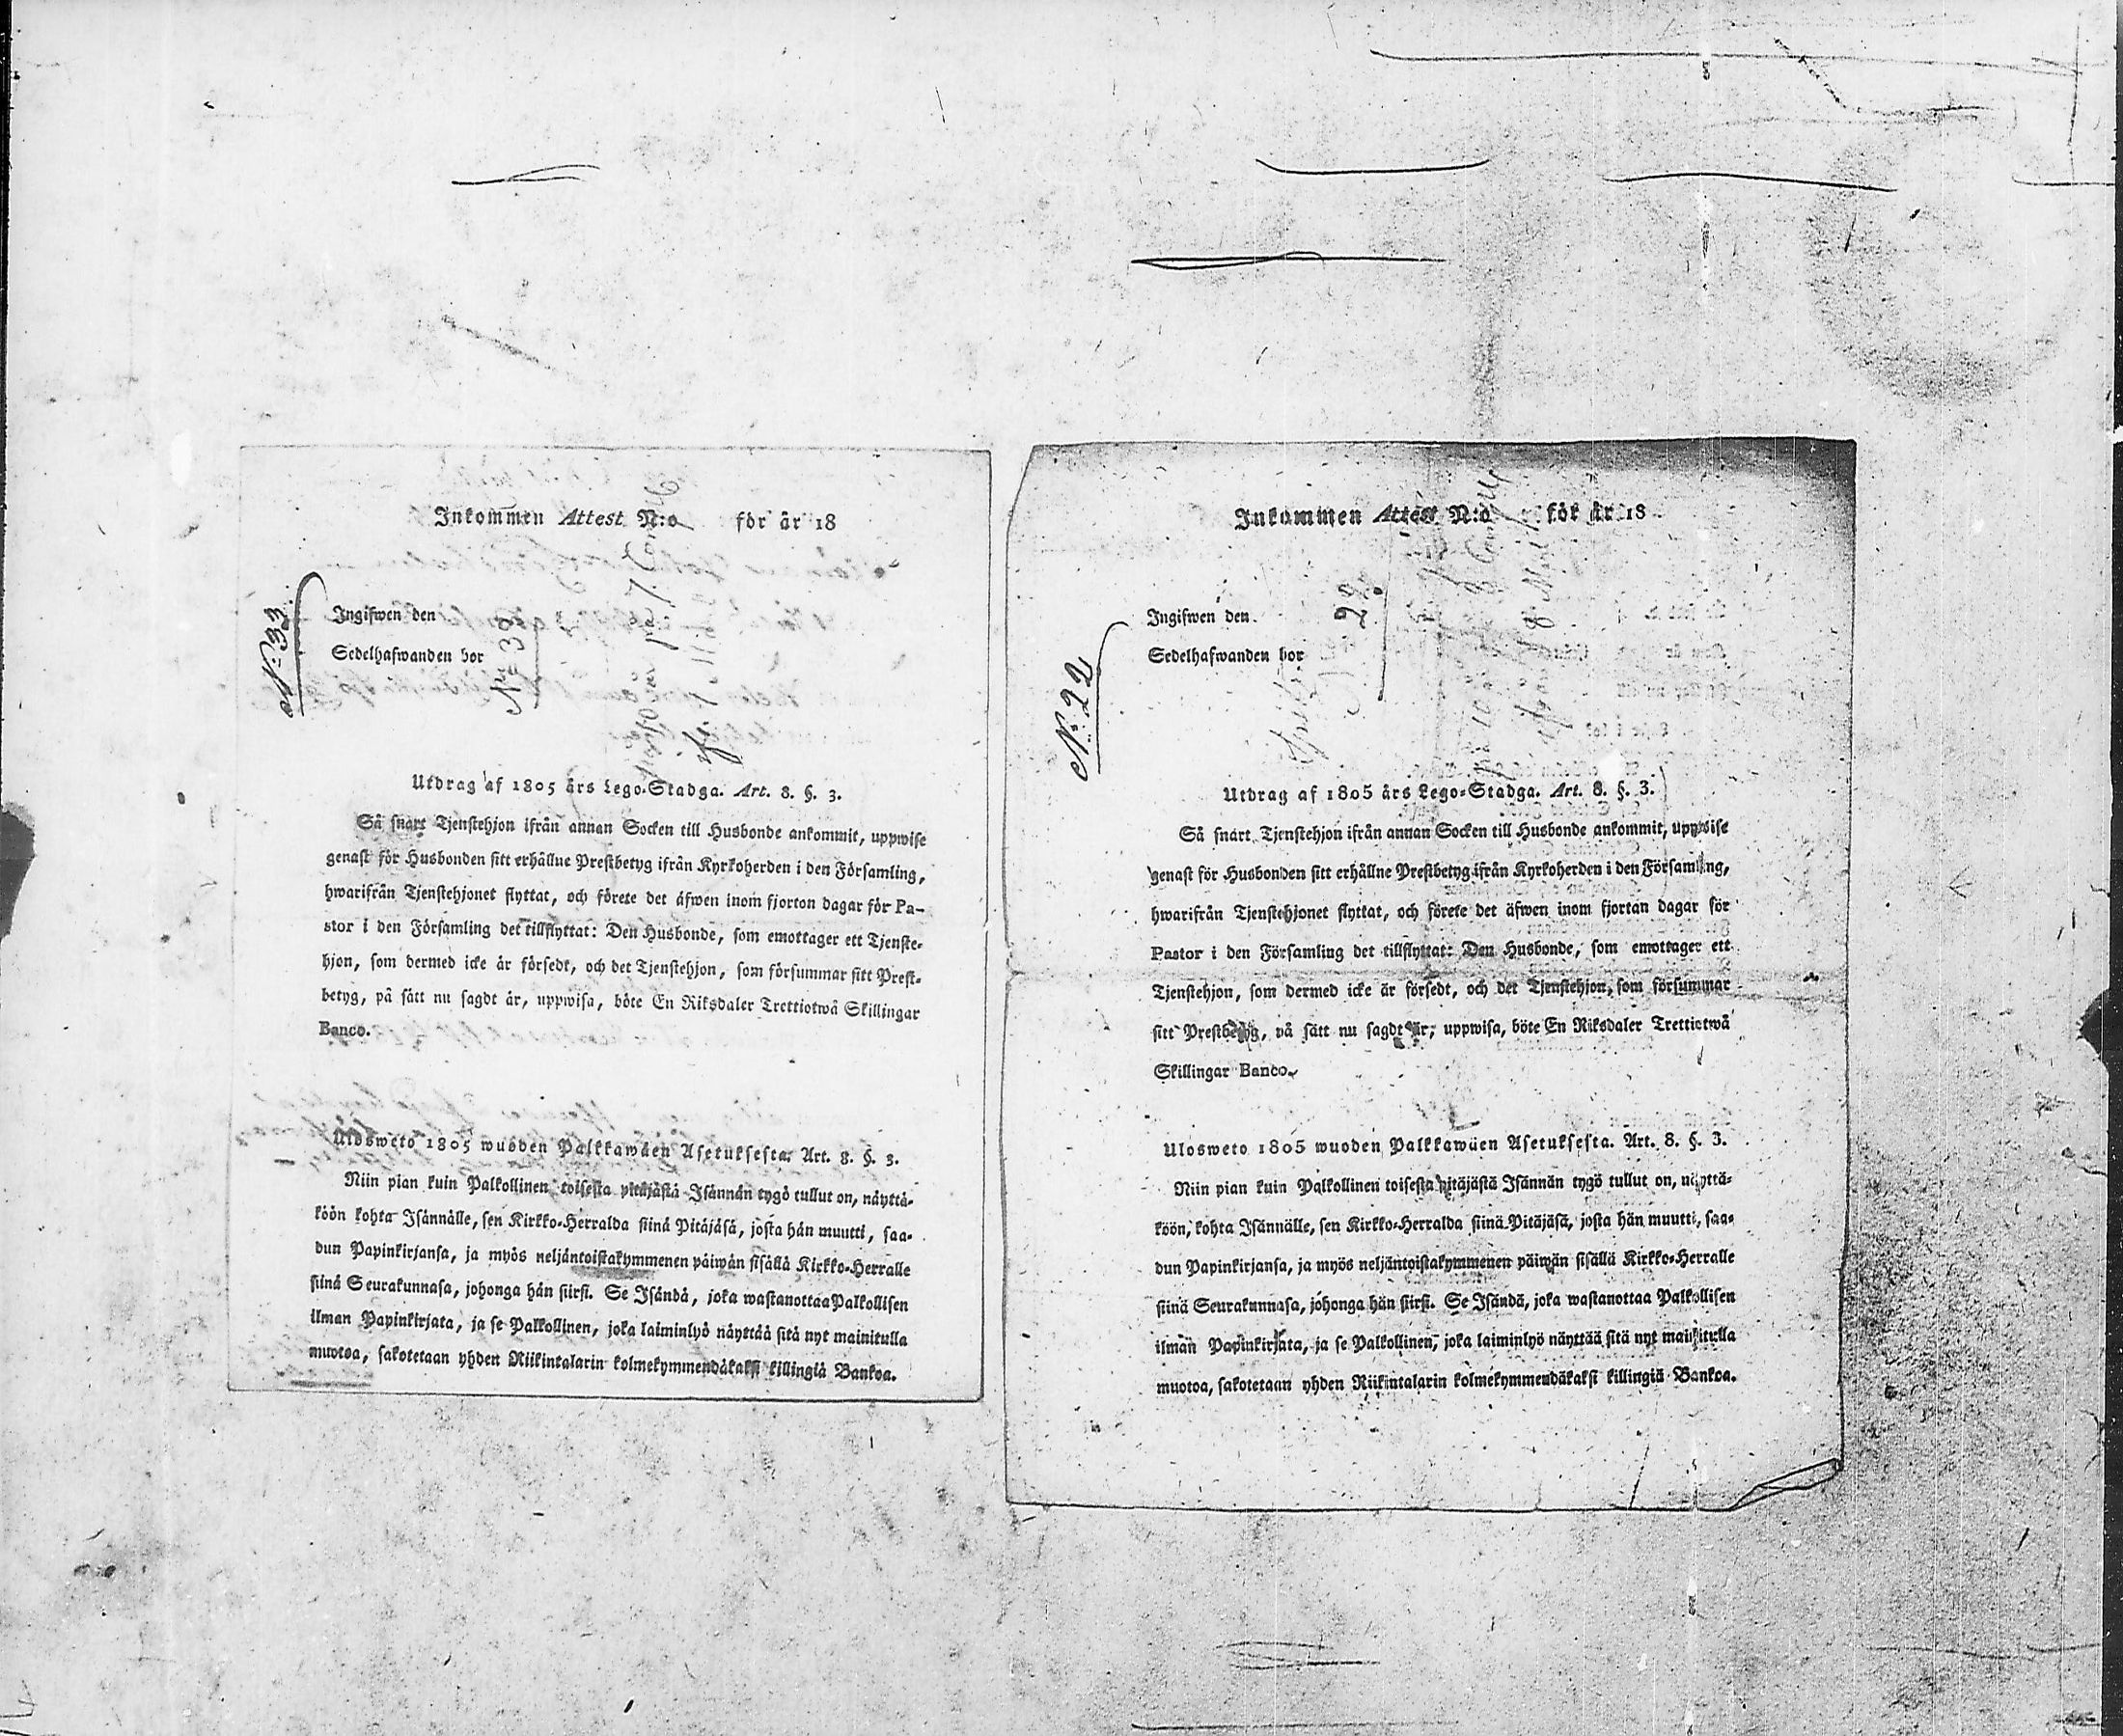 Inkommen Attest N:o för år 18
N:o 33
Ingifwen den
Sedelhafwanden bor
Utdrag af 1805 års Lego-Stadga. Art. 8. §. 3.
Så snart Tjenstehjon ifrån annan Socken till Husbonde ankommit, uppwise
genast för Husbonden sitt erhållne Prestbetyg ifrån Kyrkoherden i den Församling,
hwarifrån Tjenstehjonet flyttat, och förete det äfwen inom fjorton dagar för Pa-
stor i den Församling det tillflyttat: Den Husbonde, som emottager ett Tjenste-
hjon, som dermed icke är försedt, och det Tjenstehjon, som försummar sitt Prest-
betyg, på sätt nu sagdt är, uppwisa, böte En Riksdaler Trettiotwå Skillingar
Banco.
Ulosweto 1805 wuoden Palkkawäen Asetuksesta. Art. 8. §. 3.
Niin pian kuin Palkollinen toisesta pitäjästä Isännän tygö tullut on, näyttä-
köön kohta Isännälle, sen Kirkko-Herralda siinä Pitäjäsä, josta hän muutti, saa-
dun Papinkirjansa, ja myös neljäntoistakymmenen päiwän sisällä Kirkko-Herralle
siinä Seurakunnasa, johonga hän siirsi. Se Isändä, joka wastanottaa Palkollisen
ilman Papinkirjata, ja se Palkollinen, joka laiminlyö näyttää sitä nyt mainitulla
muotoa, sakotetaan yhden Riikintalarin kolmekymmendäkaksi killingiä Bankoa.
Inkommen Attest N:o för år 18
N:o 22
22
Ingifwen den
Sedelhafwanden bor
Utdrag af 1805 års Lego-Stadga. Art. 8. §. 3.
Så snart Tjenstehjon ifrån annan Socken till Husbonde ankommit, uppwise
genast för Husbonden sitt erhållne Prestbetyg ifrån Kyrkoherden i den Församling,
hwarifrån Tjenstehjonet flyttat, och förete det äfwen inom fjorton dagar för
Pastor i den Församling det tillflyttat: Den Husbonde, som emottager ett
Tjenstehjon, som dermed icke är försedt, och det Tjenstehjon, som försummar
sitt Prestbetyg, på sätt nu sagdt är, uppwisa, böte En Riksdaler Trettiotwå
Skillingar Banco.
Ulosweto 1805 wuoden Palkkawäen Asetuksesta. Art. 8. §. 3.
Niin pian kuin Palkollinen toisesta pitäjästä Isännän tygö tullut on, näyttä-
köön, kohta Isännälle, sen Kirkko-Herralda siinä Pitäjäsä, josta hän muutti, saa-
dun Papinkirjansa, ja myös neljäntoistakymmenen päiwän sisällä Kirkko-Herralle
siinä Seurakunnasa, johonga hän siirsi. Se Isändä, joka wastanottaa Palkollisen
ilman Papinkirjata, ja se Palkollinen, joka laiminlyö näyttää sitä nyt mainitulla
muotoa, sakotetaan yhden Riikintalarin kolmekymmendäkaksi killingiä Bankoa.